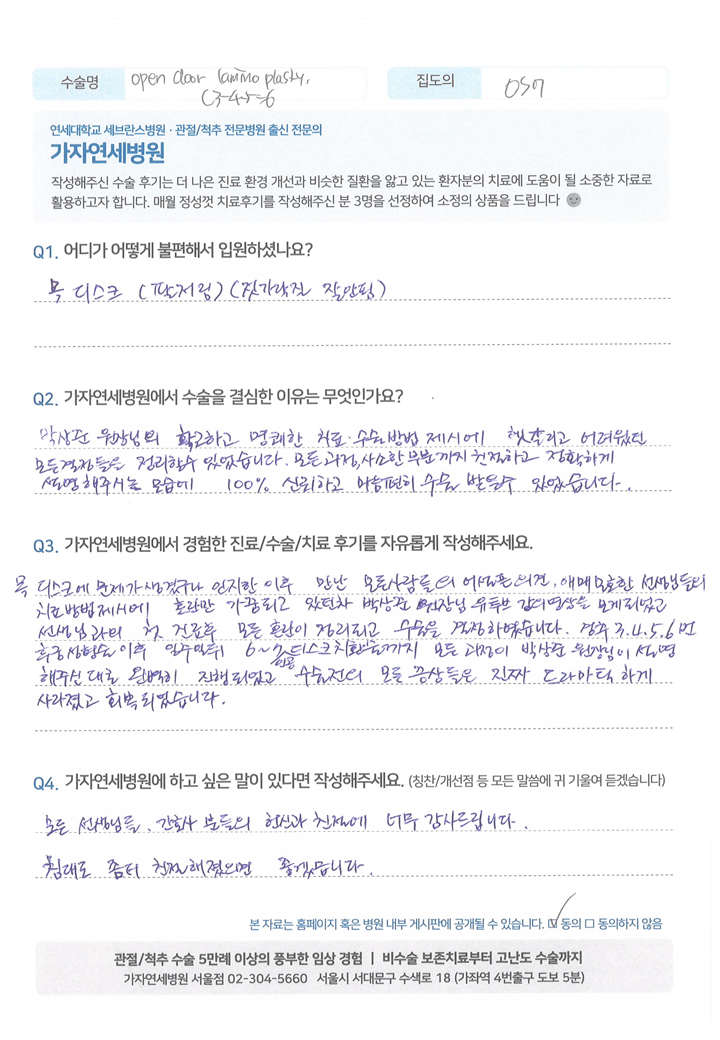 수술명 open door lamino plasty, 집도의
C3-4-5-6
연세대학교 세브란스병원 · 관절/척추 전문병원 출신 전문의
가자연세병원
작성해주신 수술 후기는 더 나은 진료 환경 개선과 비슷한 질환을 앓고 있는 환자분의 치료에 도움이 될 소중한 자료로
활용하고자 합니다. 매월 정성껏 치료후기를 작성해주신 분 3명을 선정하여 소정의 상품을 드립니다
Q1. 어디가 어떻게 불편해서 입원하셨나요?
목 디스크 (팔저림) (젓가락질 잘안됨)
Q2. 가자연세병원에서 수술을 결심한 이유는 무엇인가요?
박상준 원장님의 확고하고 명쾌한 치료·수술방법 제시에 헷갈리고 어려웠던
모든결정들을 정리할수 있었습니다. 모든과정,사소한부분까지 친절하고 정확하게
설명해주시는 모습에 100% 신뢰하고 마음편히 수술 받을수 있었습니다.
Q3. 가자연세병원에서 경험한 진료/수술/치료 후기를 자유롭게 작성해주세요.
목 디스크에 문제가 생겼구나 인지한 이후 만난 모든사람들의 어설픈의견, 애매모호한 선생님들의
치료방법제시에 혼란만 가중되고 있던차 박상준 원장님 유튜브 강의영상을 보게되었고
선생님과의 첫 진료후 모든 혼란이 정리되고 수술을 결정하였습니다. 경추 3.4.5.6번
후궁성형술 이후 일주일뒤 6~7 인공 디스크치환술까지 모든 과정이 박상준 원장님이 설명
해주신 대로 완벽히 진행되었고 수술전의 모든 증상들은 진짜 드라마틱 하게
사라졌고 회복되었습니다.
Q4. 가자연세병원에 하고 싶은 말이 있다면 작성해주세요. (칭찬/개선점 등 모든 말씀에 귀 기울여 듣겠습니다)
모든 선생님들, 간호사 분들의 헌신과 친절에 너무 감사드립니다.
침대도 좀더 해졌으면 좋겠습니다.
본 자료는 홈페이지 혹은 병원 내부 게시판에 공개될 수 있습니다. ☑ 동의 □ 동의하지 않음
관절/척추 수술 5만례 이상의 풍부한 임상 경험 | 비수술 보존치료부터 고난도 수술까지
가자연세병원 서울점 02-304-5660 서울시 서대문구 수색로 18 (가좌역 4번출구 도보 5분)